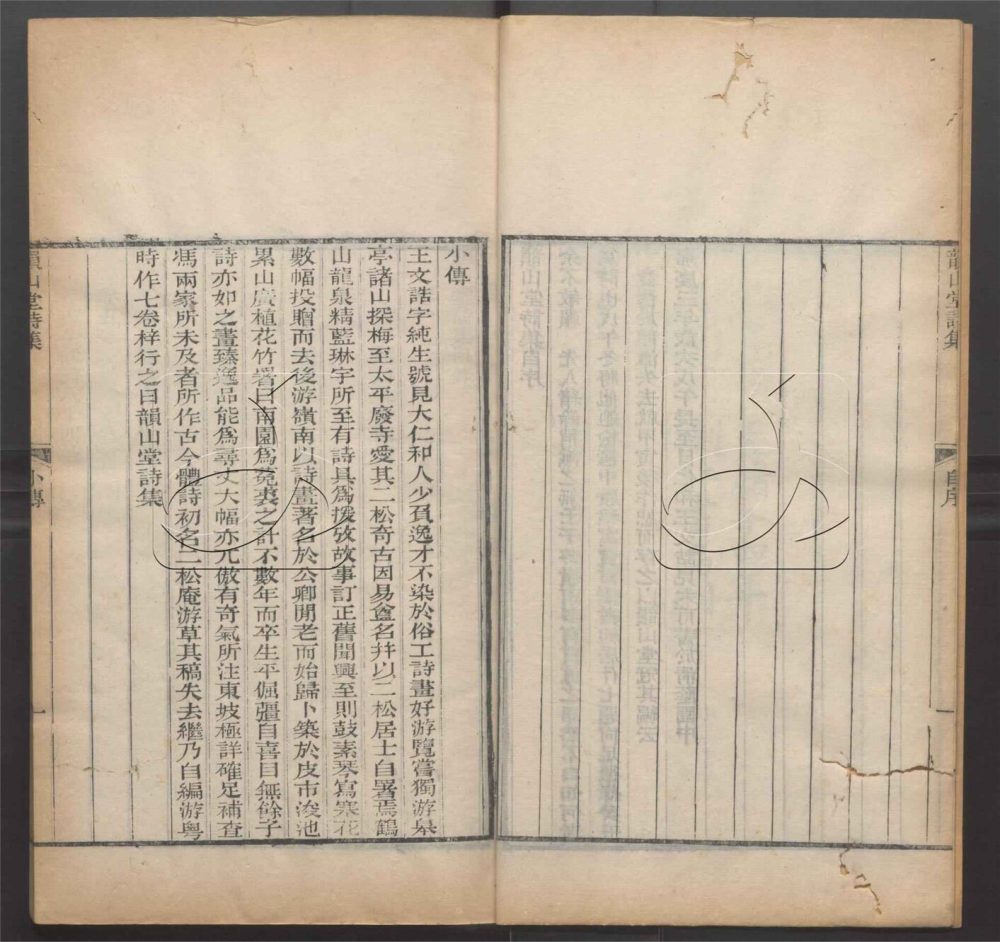 韻山堂詩集
自序
小傳
王文誥字純生號見大仁和人少負逸才不染於俗工詩畫好游覽嘗獨游皋
亭諸山探梅至太平廢寺愛其二松奇古因易盦名幷以二松居士自署焉鶴
山龍泉精藍琳宇所至有詩具爲援攷故事訂正舊聞興至則鼓素琴寫寒花
數幅投贈而去後游嶺南以詩畫著名於公卿閒老而始歸卜築於皮市浚池
累山廣植花竹署曰南園爲菟裘之計不數年而卒生平倔彊自喜目無餘子
詩亦如之畫臻逸品能爲尋丈大幅亦兀傲有奇氣所注東坡極詳確足補查
馮兩家所未及者所作古今體詩初名二松庵游草其稿失去繼乃自編游粵
時作七卷梓行之曰韻山堂詩集
韻山堂詩集
小傳
一